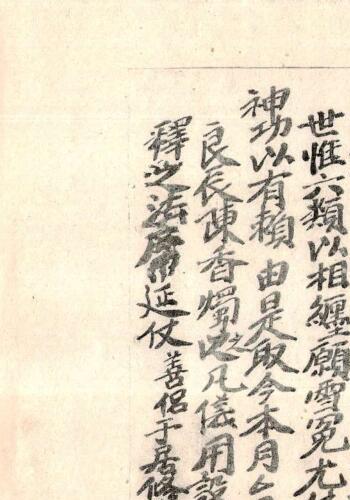 世惟六類以相纏願雪冤尤
神功以有賴由是取今本月
良辰陳香燭之凡儀用設
釋之法席延仗善侶于居修